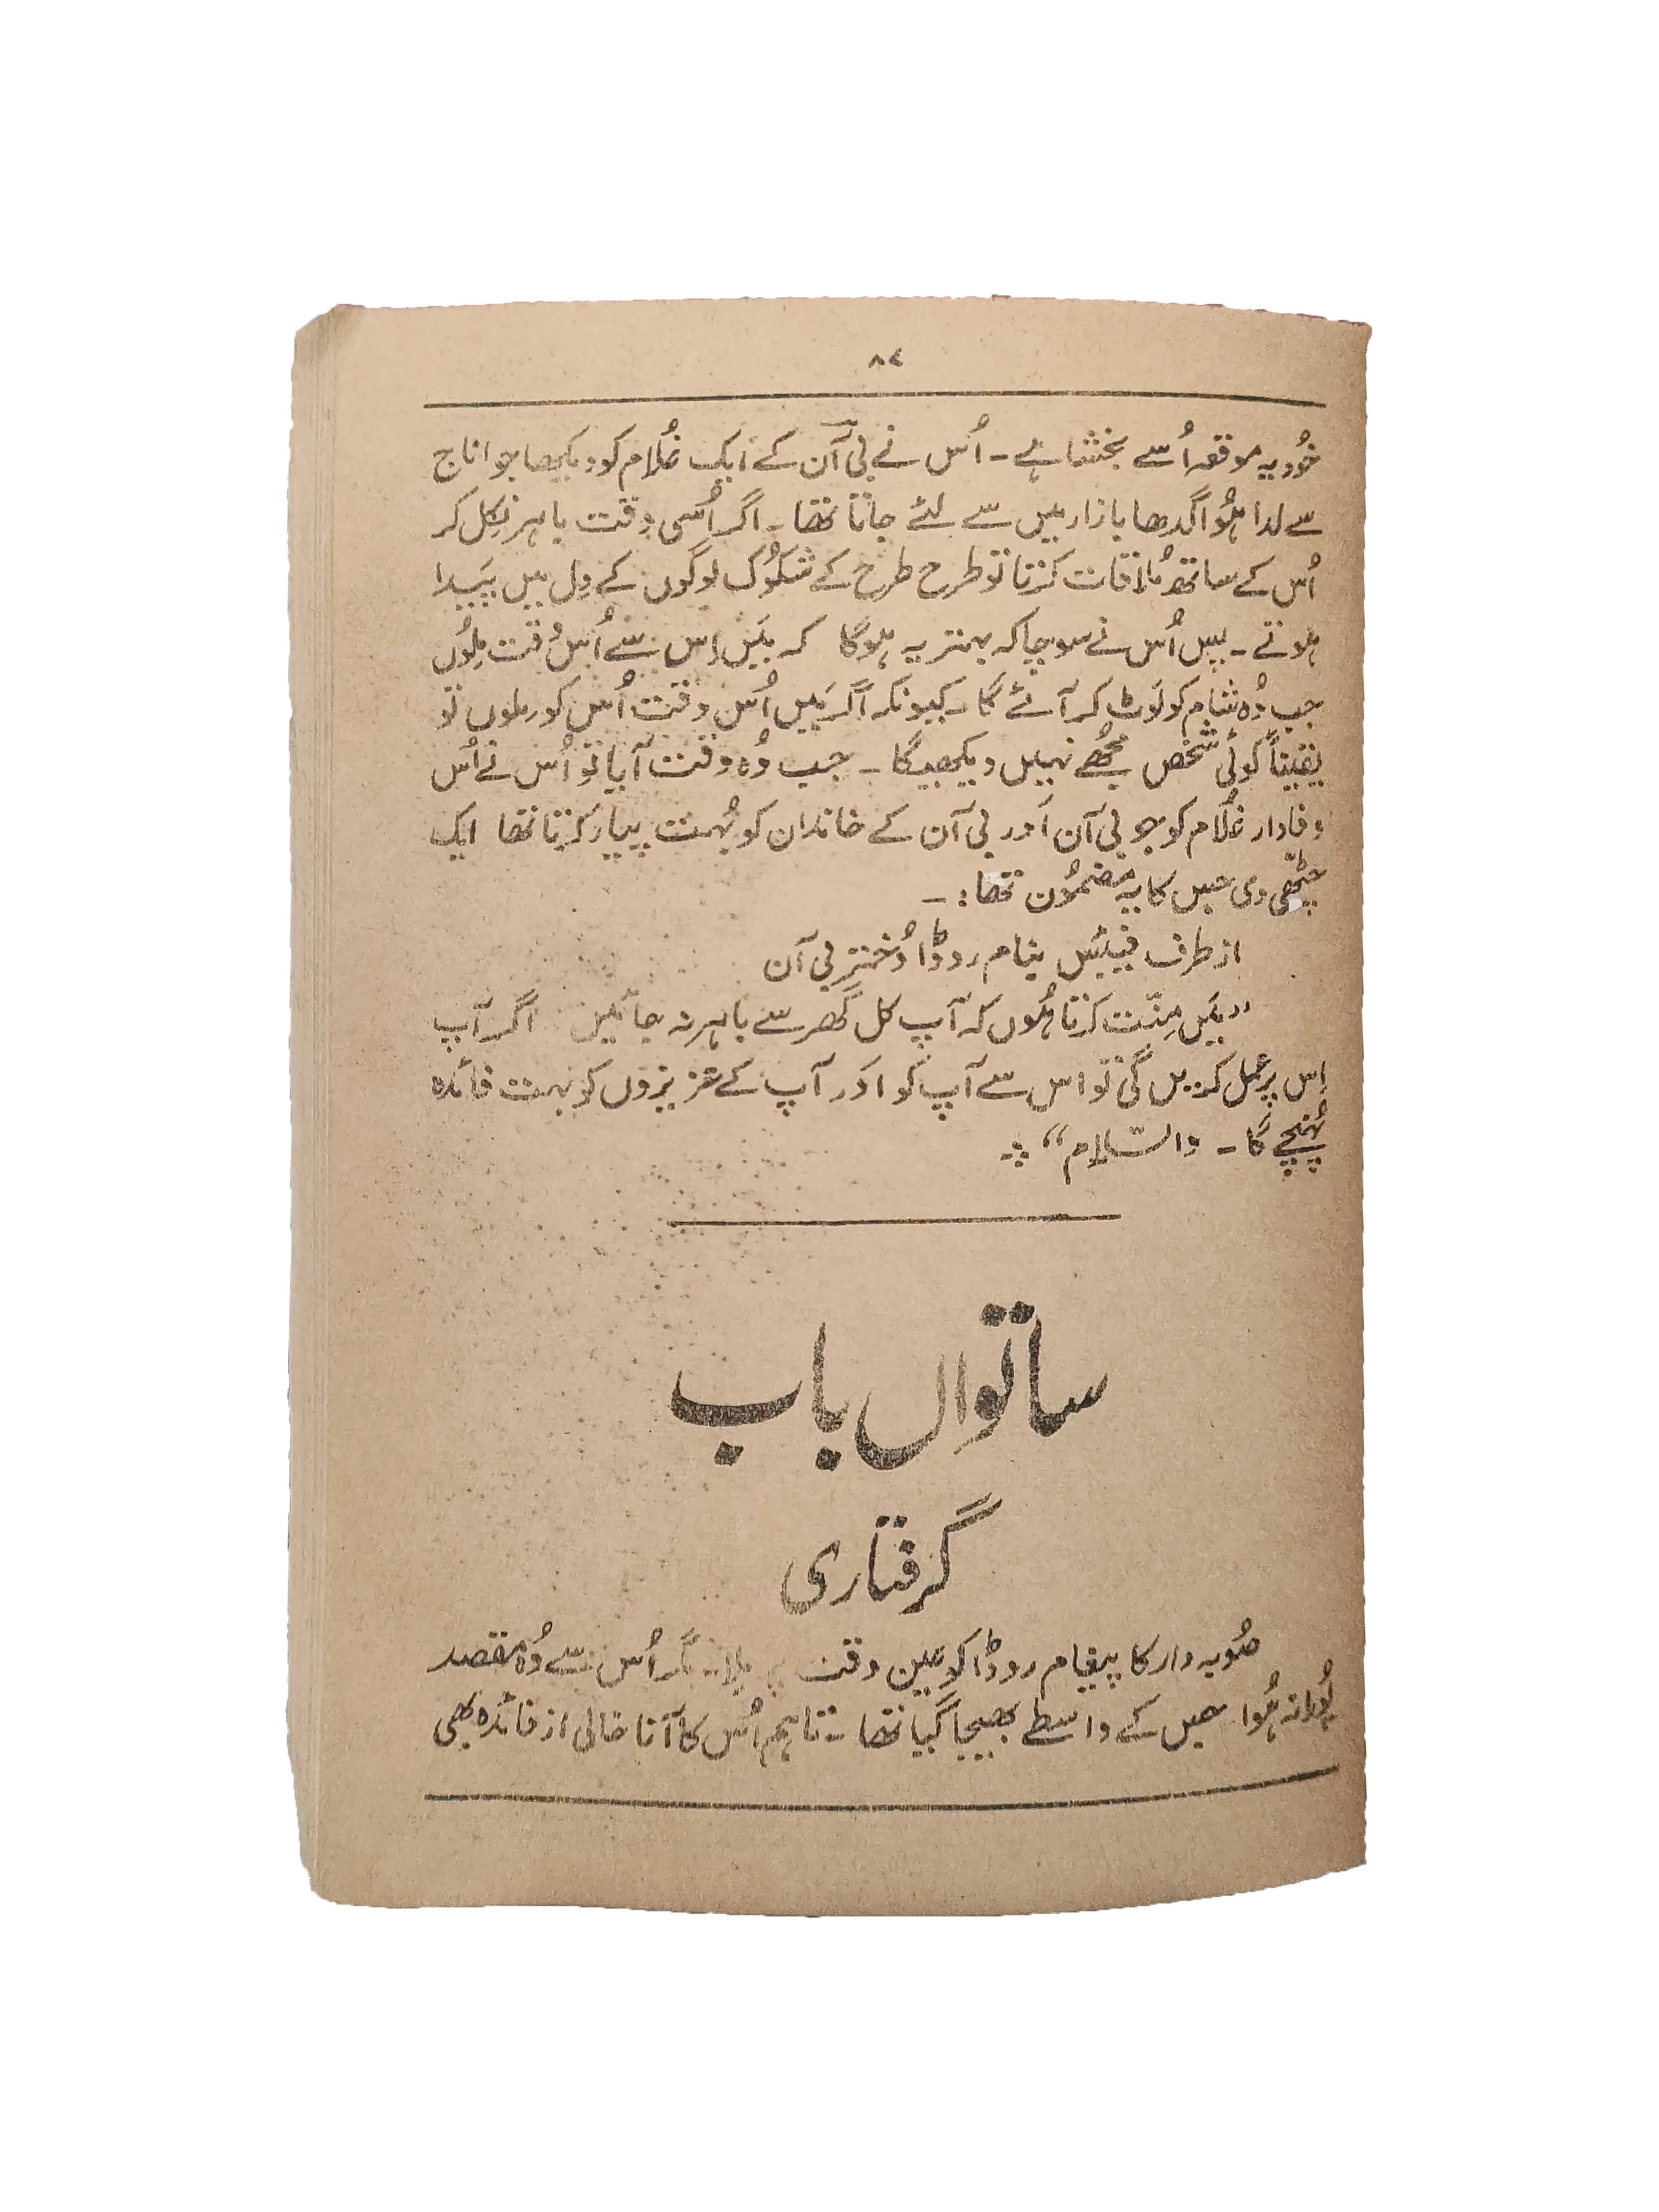 ۸۴
خُود یہ موقعہ اُسے بخشتا ہے۔ اُس نے لِی آن کے ایک غُلام کو دیکھا جو اناج
سے لدا ہُوا گدھا بازار میں سے لئے جاتا تھا۔ اگر اُسی وقت باہر نِکل کر
اُس کے ساتھ مُلاقات کرتا تو طرح طرح کے شکُوک لوگوں کے دِل میں پَیدا
ہوتے۔ پس اُس نے سوچا کہ بہتر یہ ہوگا کہ مَیں اِس سے اُس وُقت مِلُوں
جب وُہ شام کو لَوٹ کر آئے گا۔ کیونکہ اگر مَیں اُس وقت اُس کو ملوں تو
یقیناً کوئی شخص مجُھے نہیں دیکھیگا۔ جب وُہ وقت آیا تو اُس نے اُس
وفادار غُلام کو جو لِی آن اَور لِی آن کے خاندان کو بُہت پیار کرتا تھا ایک
چِٹّھی دی جس کا یہ مضمُون تھا:۔
از طرف فیلِکس بنام روڈا دُخترِ لِی آن
”مَیں مِنّت کرتا ہُوں کہ آپ کل گھر سے باہر نہ جائیں اگر آپ
اِس پر عمل کریں گی تو اس سے آپ کو اَور آپ کے عزیزوں کو بہت فائدہ
پُہنچے گا۔ والسّلام“
ساتواں باب
گرفتاری
صُوبہ دار کا پیغام روڈا کو عین وقت پر مِلا۔ مگر اُس سے وُہ مقصد
پُورا نہ ہُوا جس کے واسطے بھیجا گیا تھا۔ تاہم اُس کا آنا خالی از فائدہ بھی